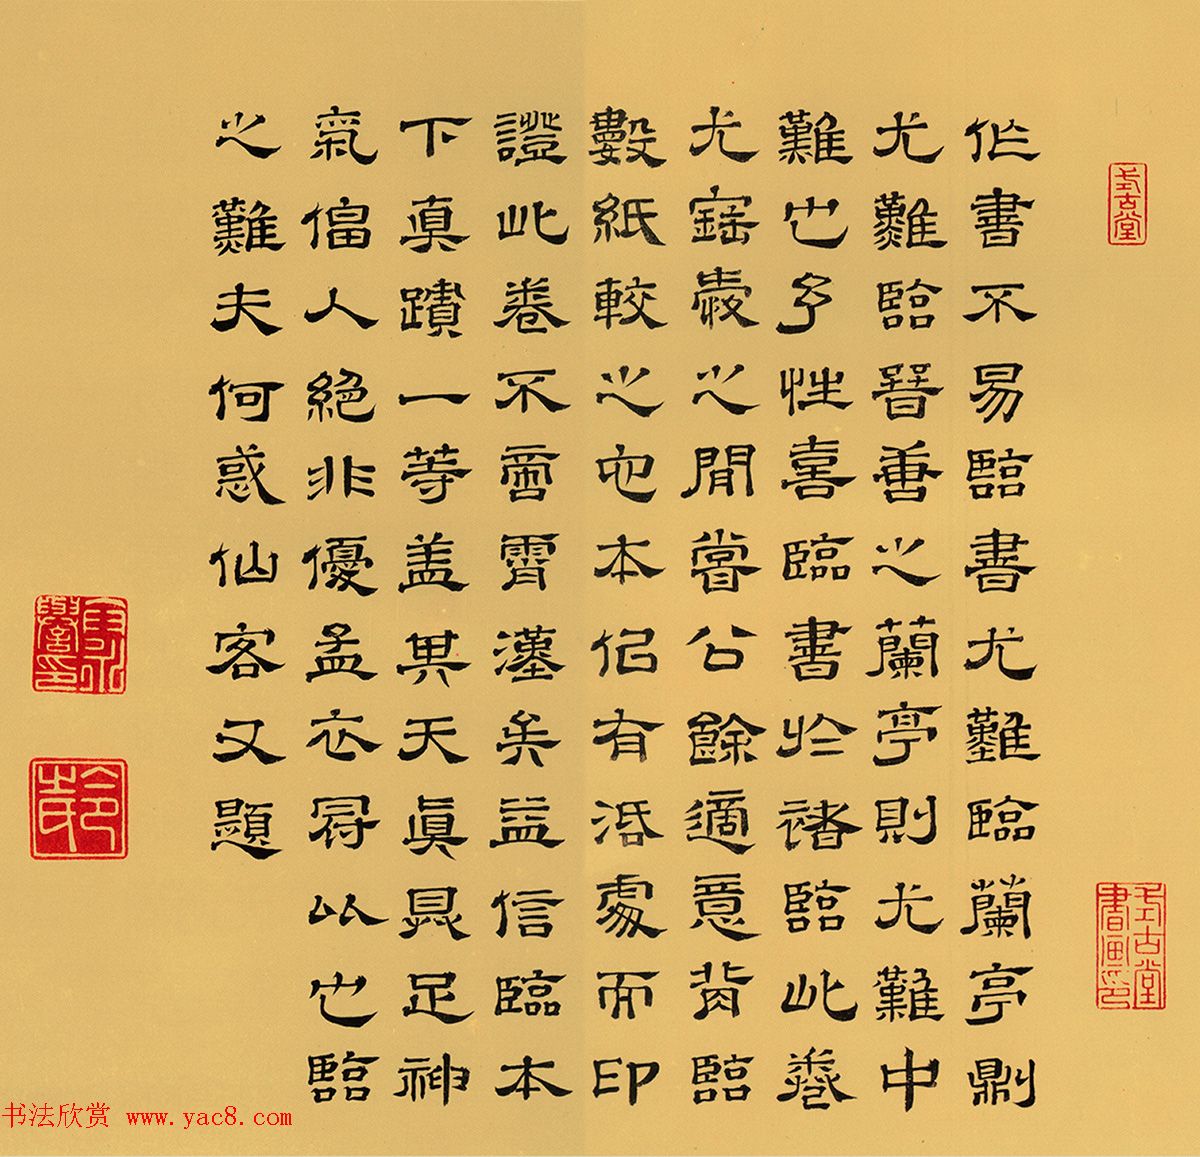 式古堂
式古堂書畫印
作書不易臨書尤難臨蘭亭則
尤難臨晉善之蘭亭則尤難中
難也予性喜臨書於褚臨此卷
尤寶愛之間嘗公餘適意背臨
數紙較之他本佀有活處而印
證此卷不啻霄漢矣益信臨本
下真蹟一等盖異天真具足神
氣偪人絕非優孟衣冠以也臨
之難夫何惑仙客又題
书法欣赏 www.yac8.com